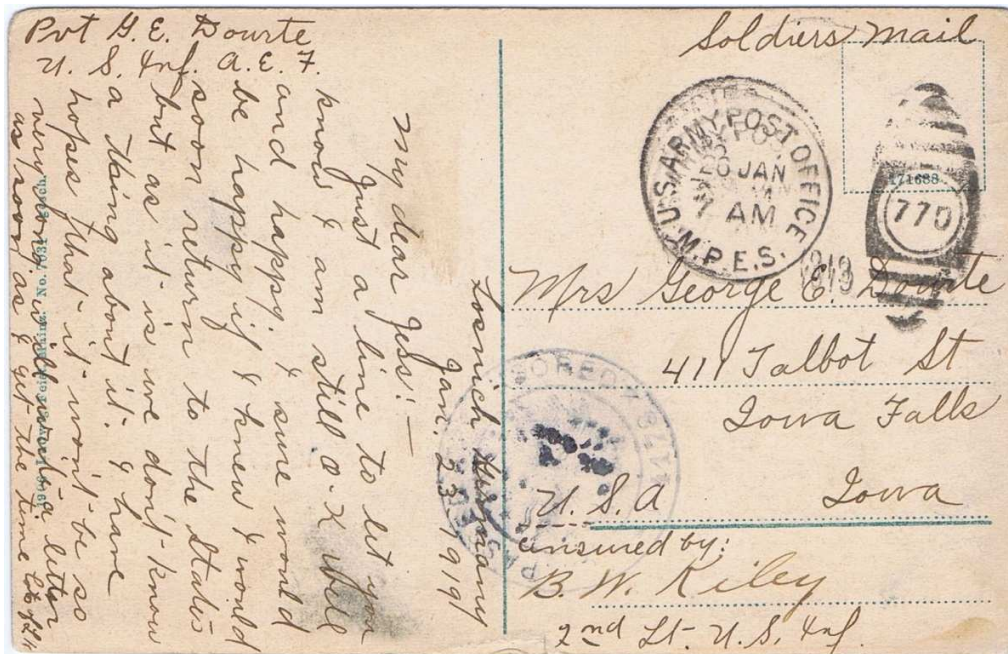 Pvt G. E. Dourte
U. S. Inf. A. E. F.
Soldiers Mail
U.S. ARMY POST OFFICE
26 JAN
7 AM
M.P.E.S.
1919
171688
770
Mrs George E. Dourte
411 Talbot St
Iowa Falls
Iowa
U.S.A
censured by:
B. W. Kiley
2nd Lt. U.S. Inf.
Losnich Germany
Jan. 23, 1919
My dear Jess:—
Just a line to let you
know I am still O-K well
and happy, I sure would
be happy if I knew I would
soon return to the States
but as it is we don't know
a thing about it. I have
hopes that it won't be so
very long. will write a letter
as soon as I get the time